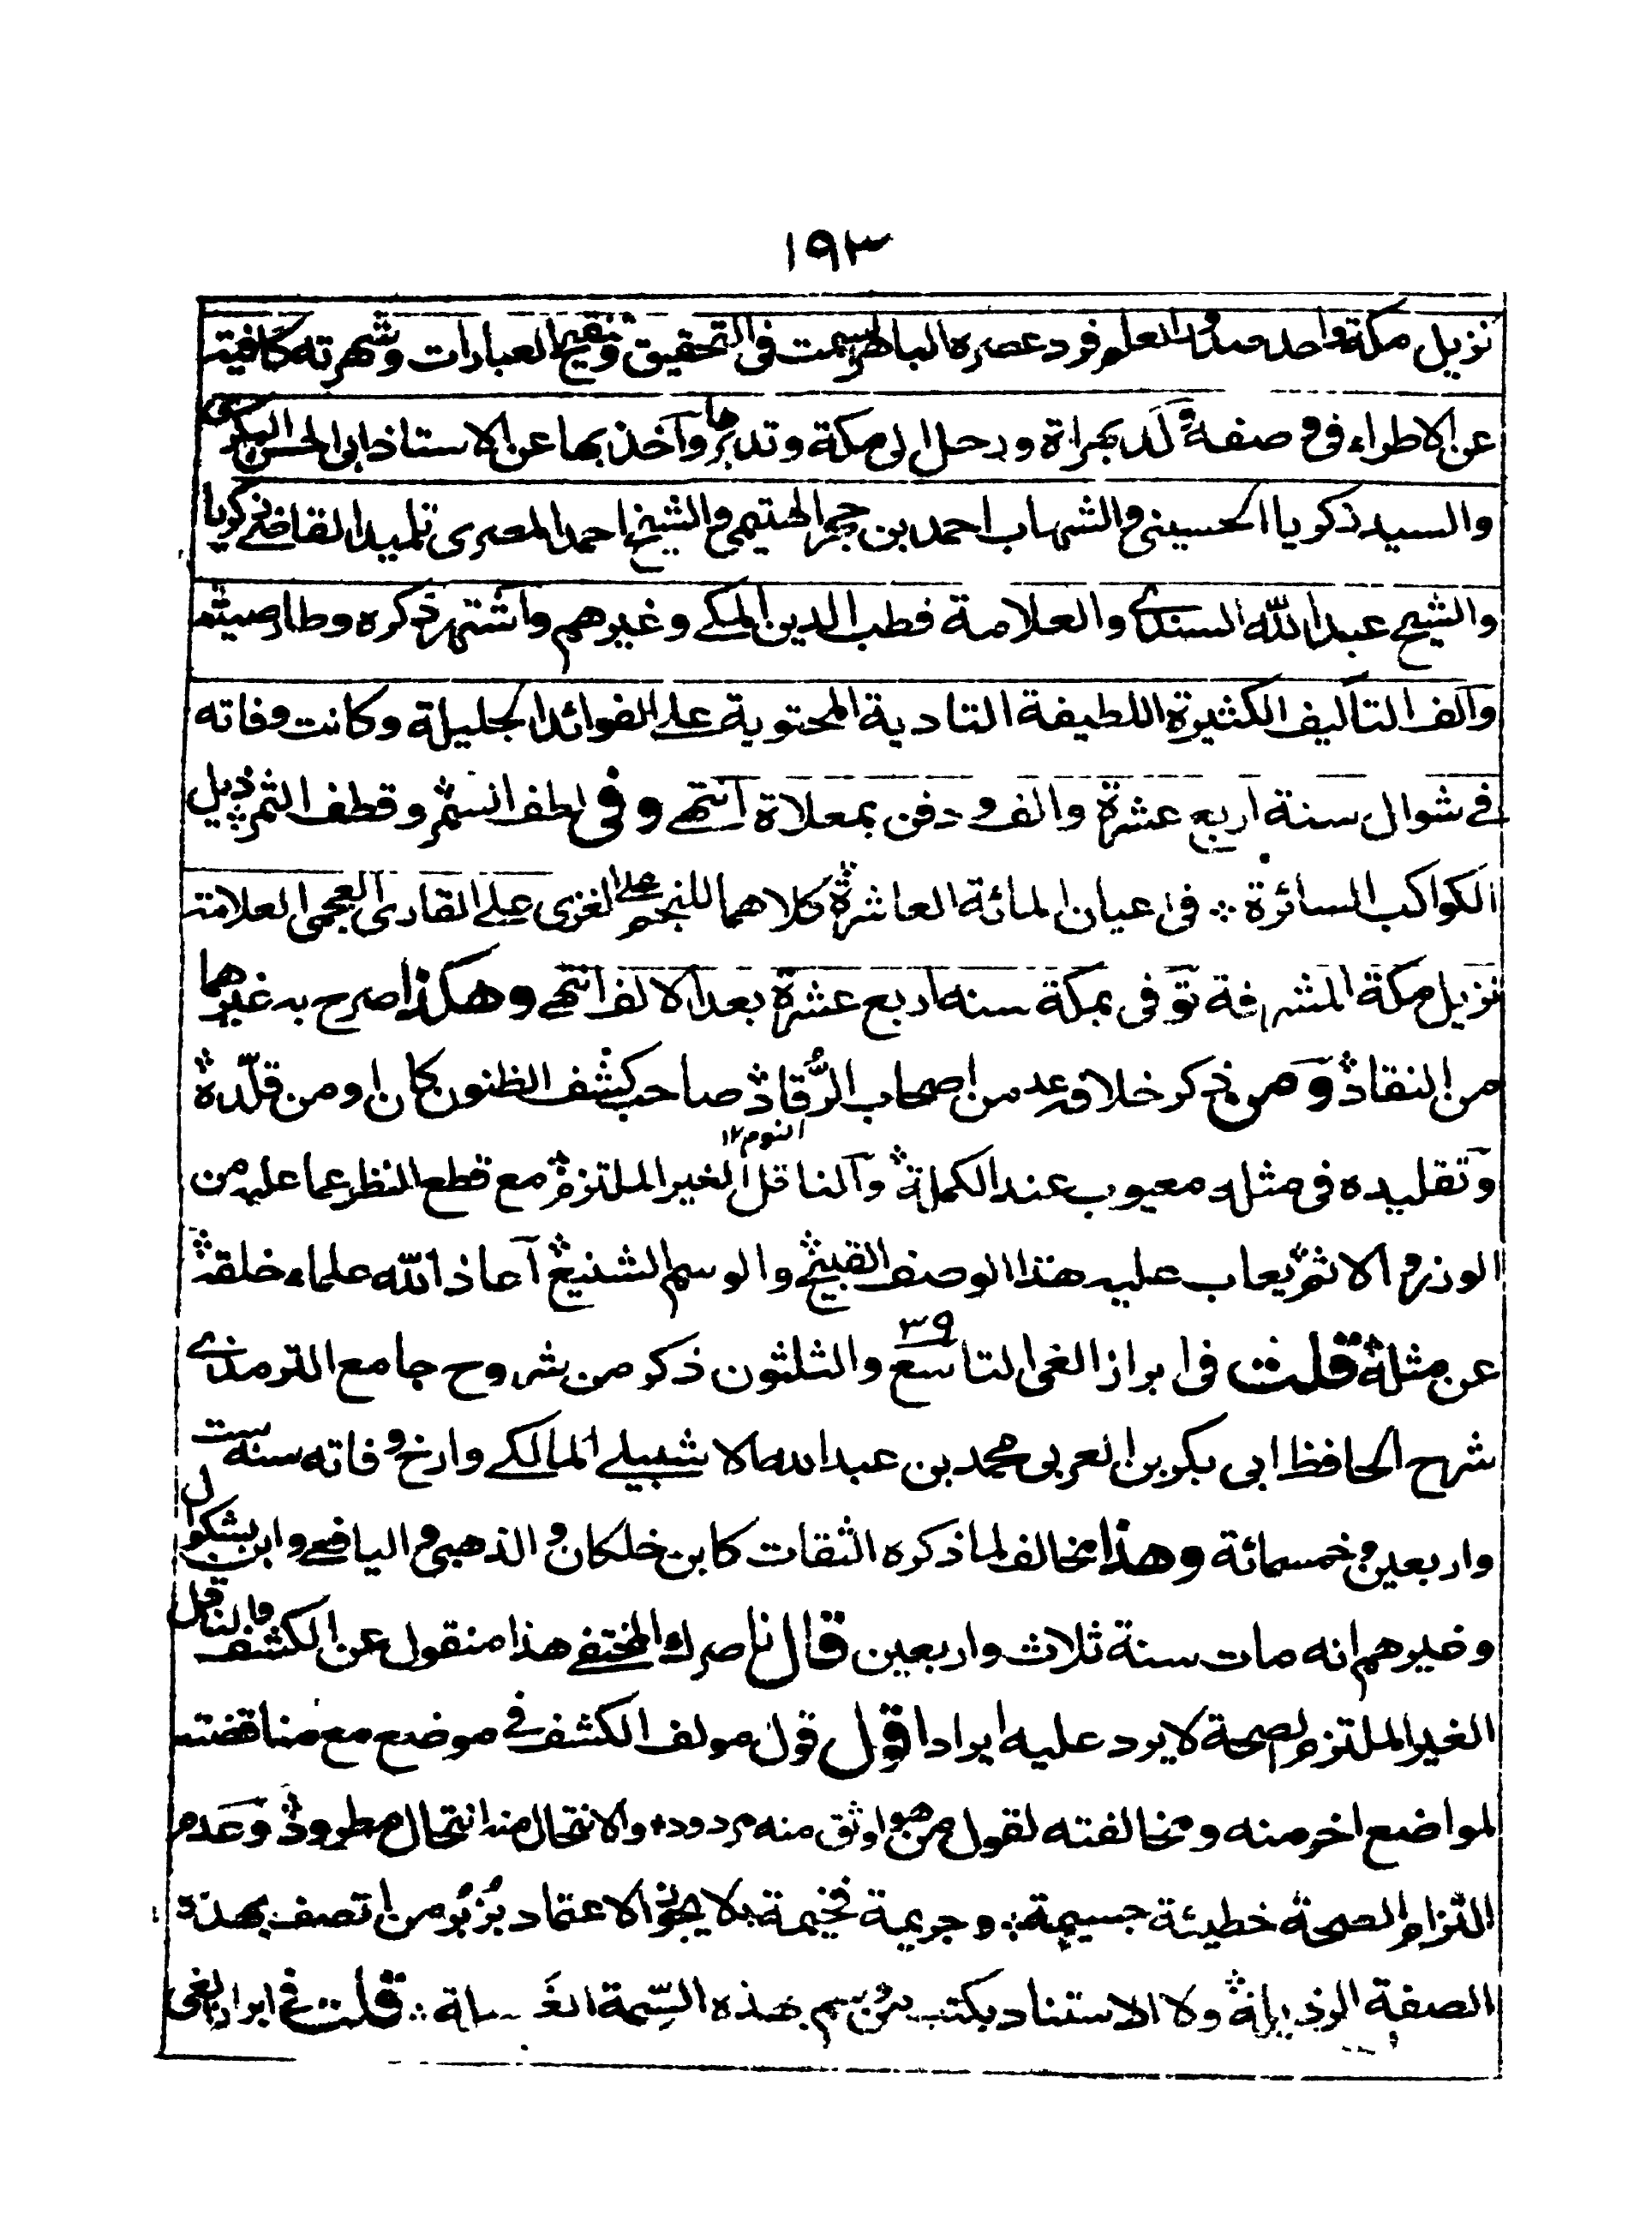 ١٩٣
نزيل مكة واحد صدور العلم فرد عصره الباهر السمت فى التحقيق وتنقيح العبارات وشهرته كافية
عن الاطراء فى وصفه ولد بهراة ورحل الى مكة وتديرها وآخذ بها عن الاستاذ ابى الحسن البكرى
والسيد زكريا الحسينى والشهاب احمد بن حجر الهيتمى والشيخ احمد المصرى تلميذ القاضى زكريا
والشيخ عبد الله السندى والعلامة قطب الدين المكى وغيرهم واشتهر ذكره وطار صيته
وآلف التآليف الكثيرة اللطيفة التادية المحتوية على الفوائد الجليلة وكانت وفاته
فى شوال سنة اربع عشرة والف ودفن بمعلاة آنتهى وفى لطف السمر وقطف الثمر ذيل
الكواكب السائرة ÷ فى اعيان المائة العاشرة كلاهما للنجم الغزى على القارى العجمى العلامة
نزيل مكة المشرفة توفى بمكة سنه اربع عشرة بعد الالف انتهى وهكذا صرح به غيرهما
من النقاد ومن ذكر خلافه عد من اصحاب الرُّقاد صاحب كشف الظنون كان او من قلّده
النوم ١٢
وتقليده فى مثله معيوب عند الكملة وآلناقل الغير الملتزم مع قطع النظر عما عليه من
الوزر والاثم يعاب عليه هذا الوصف القبيح والوسم الشنيع آعاذ الله علماء خلقه
عن مثله قلت فى ابراز الغى التاسع والثلثون ذكر من شروح جامع الترمذى
٣٩
شرح الحافظ ابى بكر بن العربى محمد بن عبد الله الاشبيلى المالكى وارخ وفاته سنة ست
واربعين وخمسمائة وهذا مخالف لما ذكره الثقات كابن خلكان والذهبى واليافعى وابن بشكوال
وغيرهم انه مات سنة ثلاث واربعين قال ناصرك المختفى هذا منقول عن الكشف والناقل
الغير الملتزم لصحة لا يرد عليه ايراد اقول قول مولف الكشف فى موضع مع مناقضته
لمواضع اخر منه ومخالفته لقول من هو اوثق منه مردود، والانتحال منه انتحال مطرود وعدم
التزام الصحة خطيئة جسيمة ÷ وجريمة فخيمة ÷ لا يجوز الاعتماد بزُبُر من اتصف بهذه
الصفة الرذيلة ولا الاستناد بكتب من وسم بهذه السِّمة الغسالة ÷ قلت فى ابراز الغى